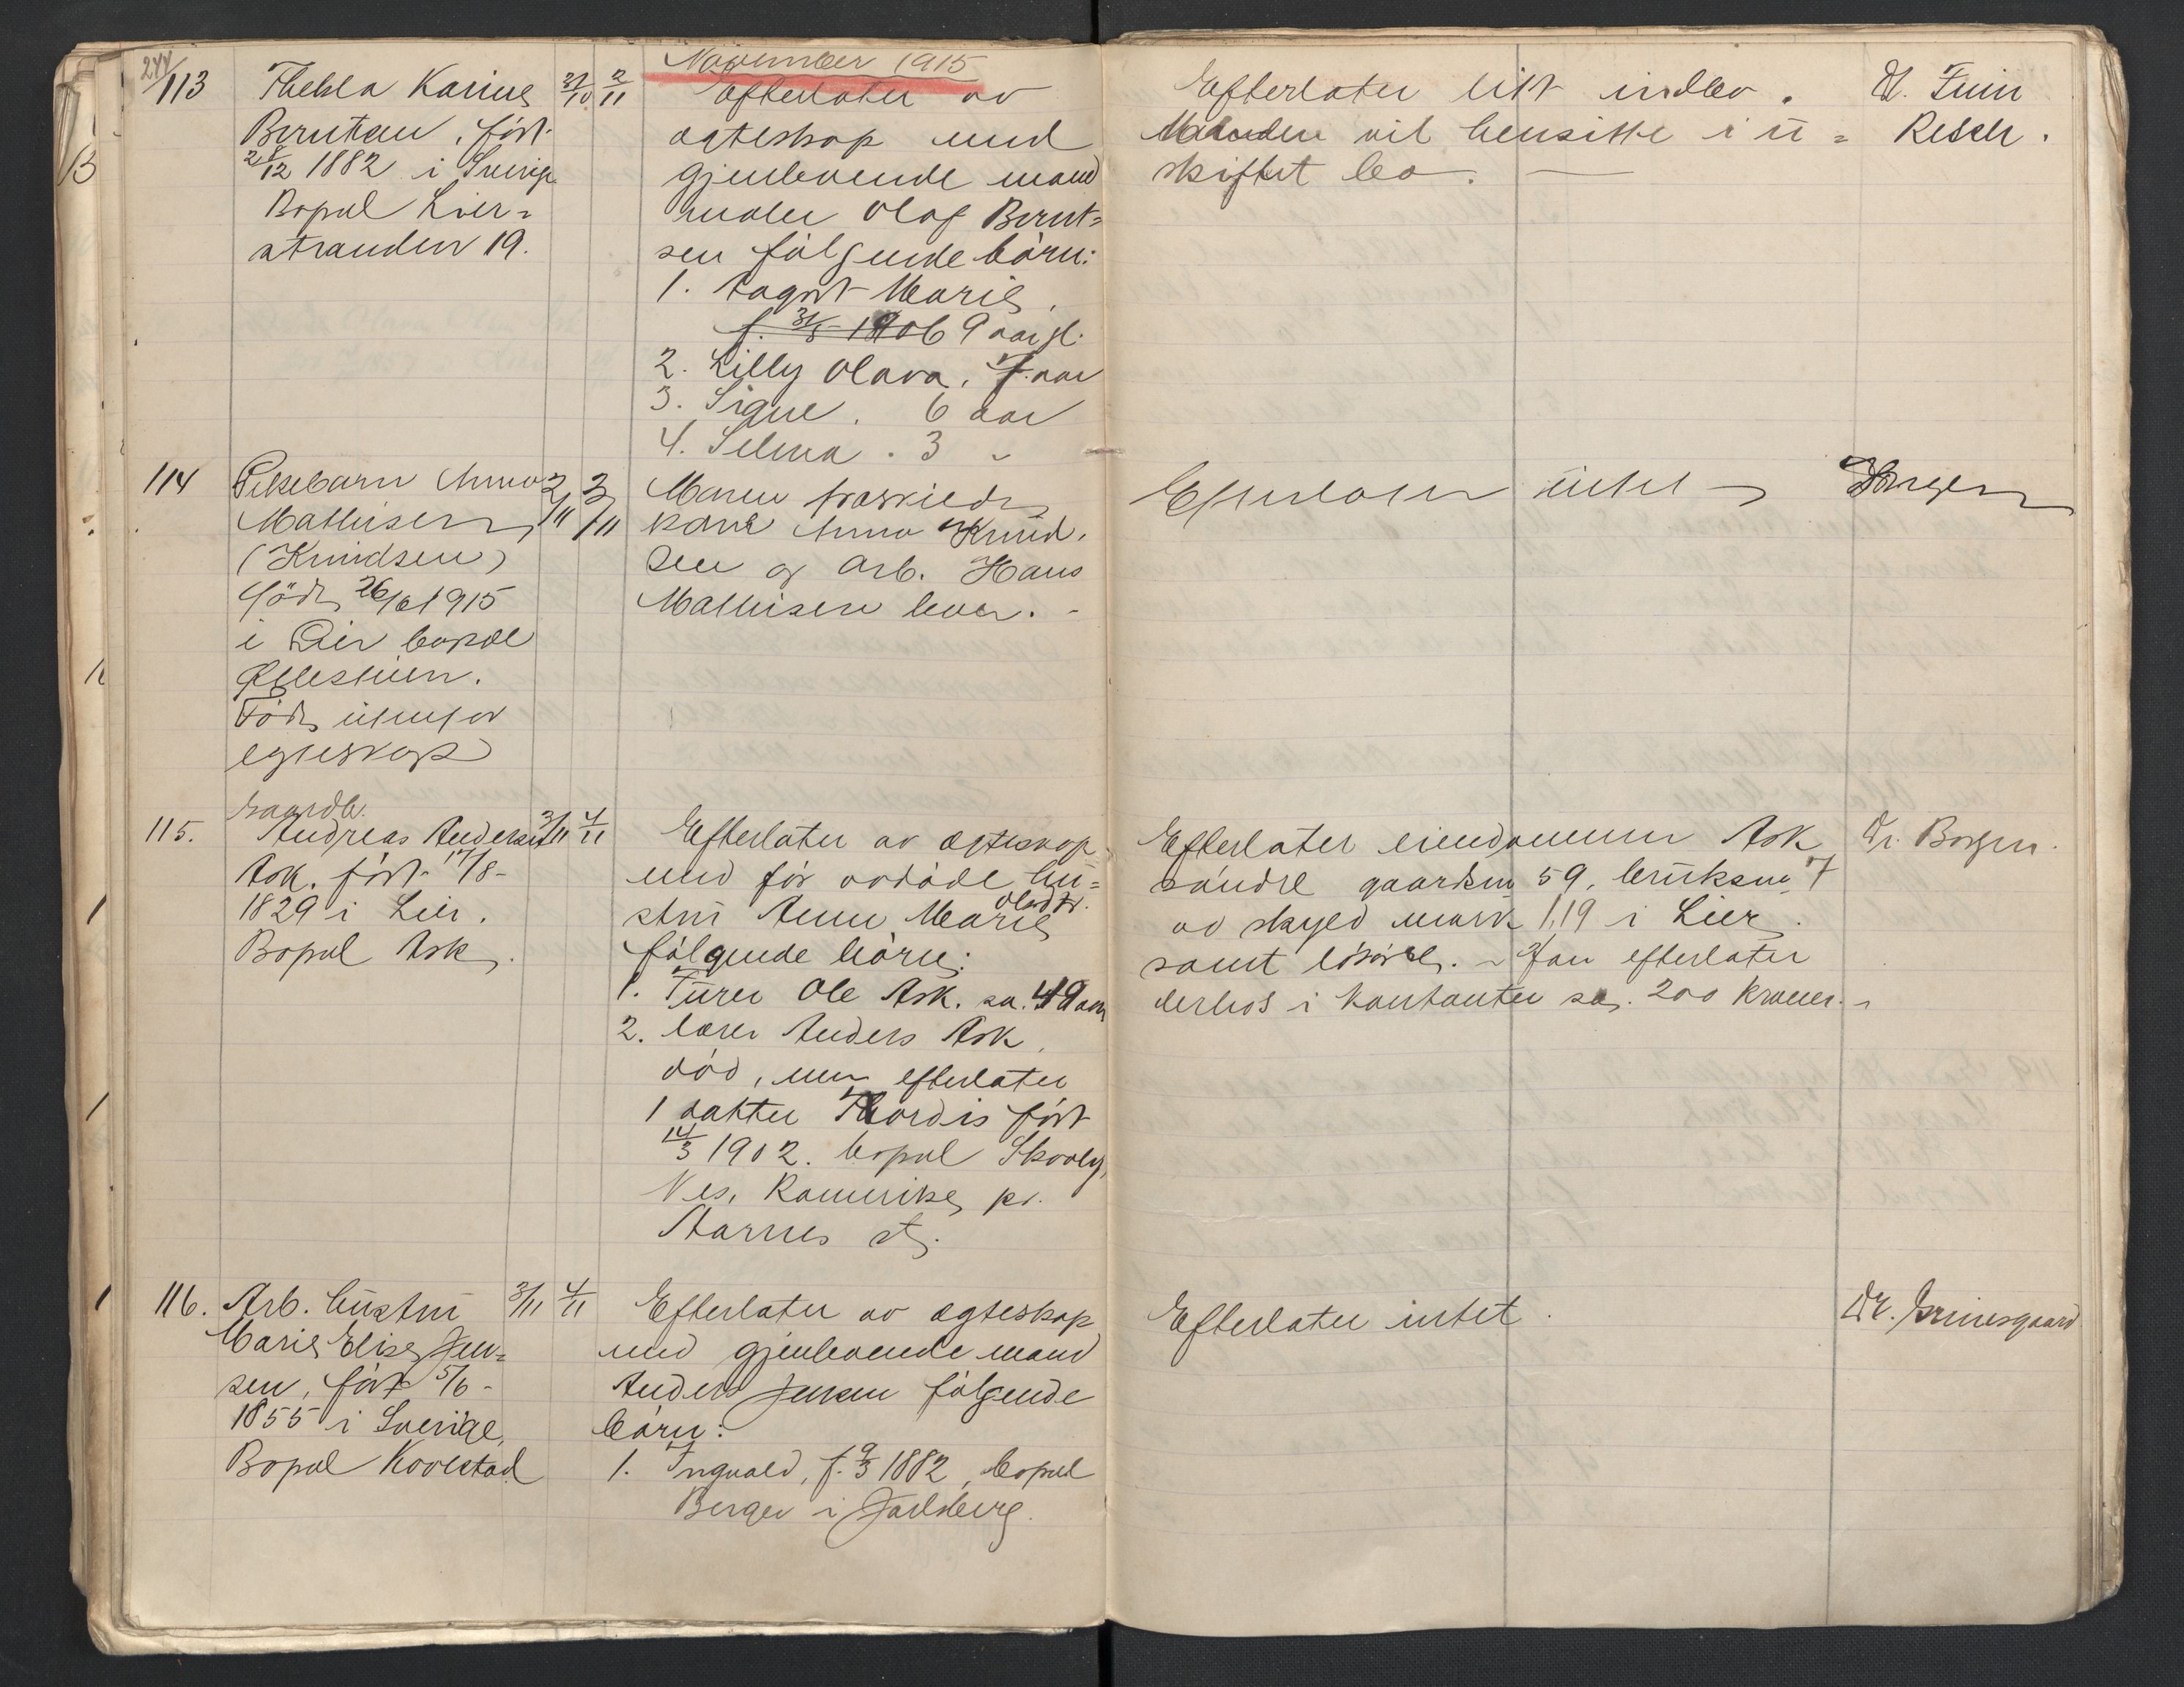 244
November 1915
113
Thekla Karine
Berntsen, født
28/12 1882 i Sverige
Bopæl Lier=
stranden 19.
31/10 2/11
Efterlater av
ægteskap med
gjenlevende mand
maler Olaf Bernt=
sen følgende børn:
1. Aagot Marie,
f. 31/5 1906 9 aar gl.
2. Lilly Olava, 7 aar
3. Signe. 6 aar
4. Selma. 3 "
Efterlater litt indbo.
Manden vil hensitte i u=
skiftet bo.
Dr. Funi
Resch.
114
Pikebarn Anna
Mathisen
(Knudsen)
født 26/6 1915
i Lier bopæl
Eggesvien.
Født utenfor
egteskap
2/11 3/11
Moren fraskilt
kone Anna Knud,
sen og Arb. Hans
Mathisen lever.
Efterlater intet
Borgen
115.
Gaardbr.
Andreas Andersen
Ask. født 17/8-
1829 i Lier.
Bopæl Ask.
3/11 4/11
Efterlater av ægteskap
med før avdøde hu=
stru Anne Marie Olsdtr.
følgende børn:
1. Furer Ole Ask. ca. 49 aar
2. lærer Anders Ask,
død, men efterlater
1 datter Thordis født
14/3 1902. bopæl Skovly,
Nes, Romerike, pr.
Aarnes st.
Efterlater eiendommen Ask
søndre gaardsnr 59, bruksnr 7
av skyld mark 1,19 i Lier.
samt løsøre. - Han efterlater
derhos i kontanter ca. 200 kroner. -
Dr. Borgen.
116.
Arb. hustru
Marie Elise Jen=
sen, født 5/6-
1855 i Sverige,
Bopæl Kovestad
3/11 4/11
Efterlater av ægteskap
med gjenlevende mand
Anders Jensen følgende
børn:
1. Ingvald, f. 9/3 1882, bopæl
Berger i Jarlsberg.
Efterlater intet.
Dr. Grinisgaard